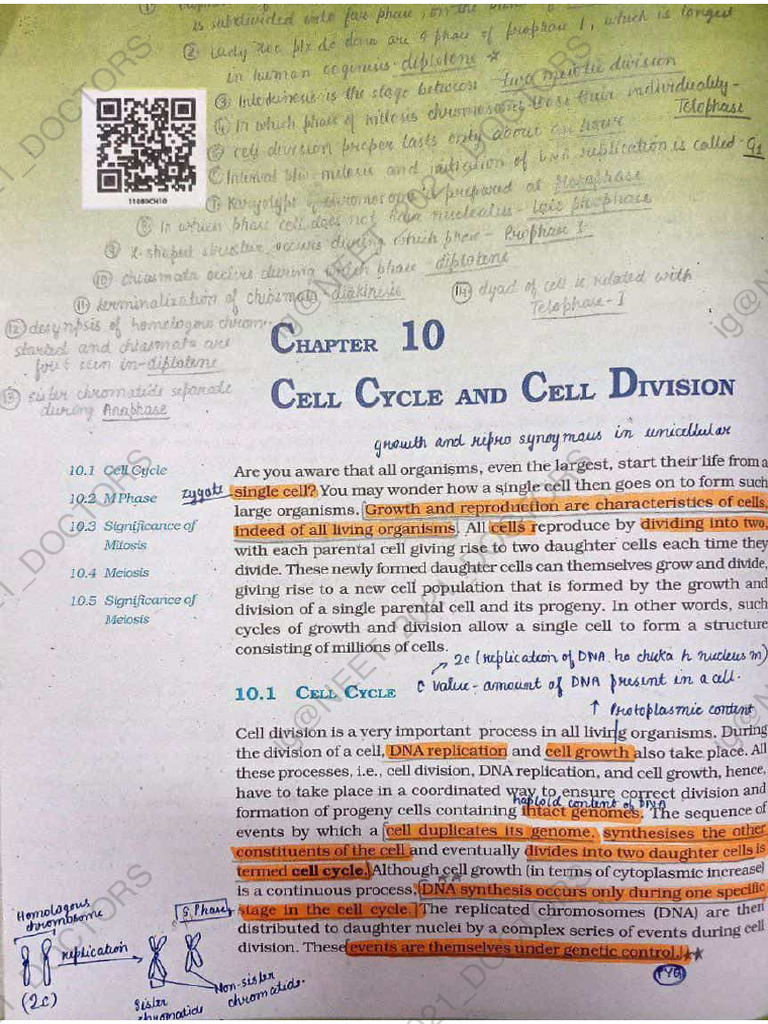 is subdivided into five phase, on the
② Lady Doc plz do dara are 4 phase of prophase I, which is longest
in human oogenesis - diplotene ★
③ Interkinesis is the stage between two meiotic division
④ In which phase of mitosis chromosome lose their individuality -
Telophase
⑤ cell division proper lasts only about an hour
Interval b/w mitosis and initiation of DNA replication is called - G1
⑦ Karyotype of chromosome is prepared at Metaphase
⑧ In which phase cell does not have nucleolus - Late prophase
⑨ X-shaped structure occurs during which phase - Prophase I
⑩ chiasmata occurs during which phase - diplotene
⑪ terminalization of chiasmata - diakinesis
⑭ dyad of cell is related with
Telophase-I
⑫ desynpsis of homologous chrom.
started and chiasmata are
first seen in - diplotene
⑬ sister chromatids separate
during Anaphase
11080CH10
CHAPTER 10
CELL CYCLE AND CELL DIVISION
growth and repro synoymous in unicellular
10.1 Cell Cycle
10.2 M Phase
10.3 Significance of
Mitosis
10.4 Meiosis
10.5 Significance of
Meiosis
zygote
Are you aware that all organisms, even the largest, start their life from a
single cell? You may wonder how a single cell then goes on to form such
large organisms. Growth and reproduction are characteristics of cells,
indeed of all living organisms. All cells reproduce by dividing into two,
with each parental cell giving rise to two daughter cells each time they
divide. These newly formed daughter cells can themselves grow and divide,
giving rise to a new cell population that is formed by the growth and
division of a single parental cell and its progeny. In other words, such
cycles of growth and division allow a single cell to form a structure
consisting of millions of cells.
2c (replication of DNA ho chuka h nucleus m)
10.1 CELL CYCLE
C value - amount of DNA present in a cell.
↑ Protoplasmic content
Cell division is a very important process in all living organisms. During
the division of a cell, DNA replication and cell growth also take place. All
these processes, i.e., cell division, DNA replication, and cell growth, hence,
have to take place in a coordinated way to ensure correct division and
haploid content of DNA
formation of progeny cells containing intact genomes. The sequence of
events by which a cell duplicates its genome, synthesises the other
constituents of the cell and eventually divides into two daughter cells is
termed cell cycle. Although cell growth (in terms of cytoplasmic increase)
is a continuous process, DNA synthesis occurs only during one specific
stage in the cell cycle. The replicated chromosomes (DNA) are then
distributed to daughter nuclei by a complex series of events during cell
division. These events are themselves under genetic control. ★★
PYQ
Homologous
chromosome
S. Phase
replication
(2c)
Sister
chromatids
Non-sister
chromatids.
ig@NEET_2021_DOCTORS